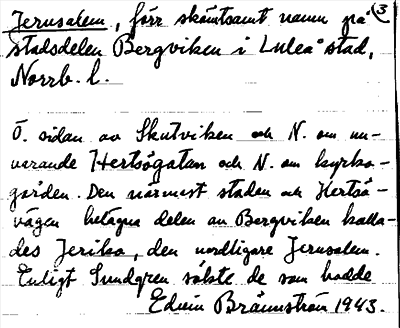 Jerusalem, förr skämtsamt namn på (3
stadsdelen Bergviken i Luleå stad,
Norrb. l.
Ö. sidan av Skutviken och N. om nu-
varande Hertsögatan och N. om kyrko-
gården. Den närmast staden och Hertsö-
vägen belägna delen av Bergviken kalla-
des Jeriko, den nordligare Jerusalem.
Enligt Sundgren sålste de som hodde
Edvin Brännström 1943.